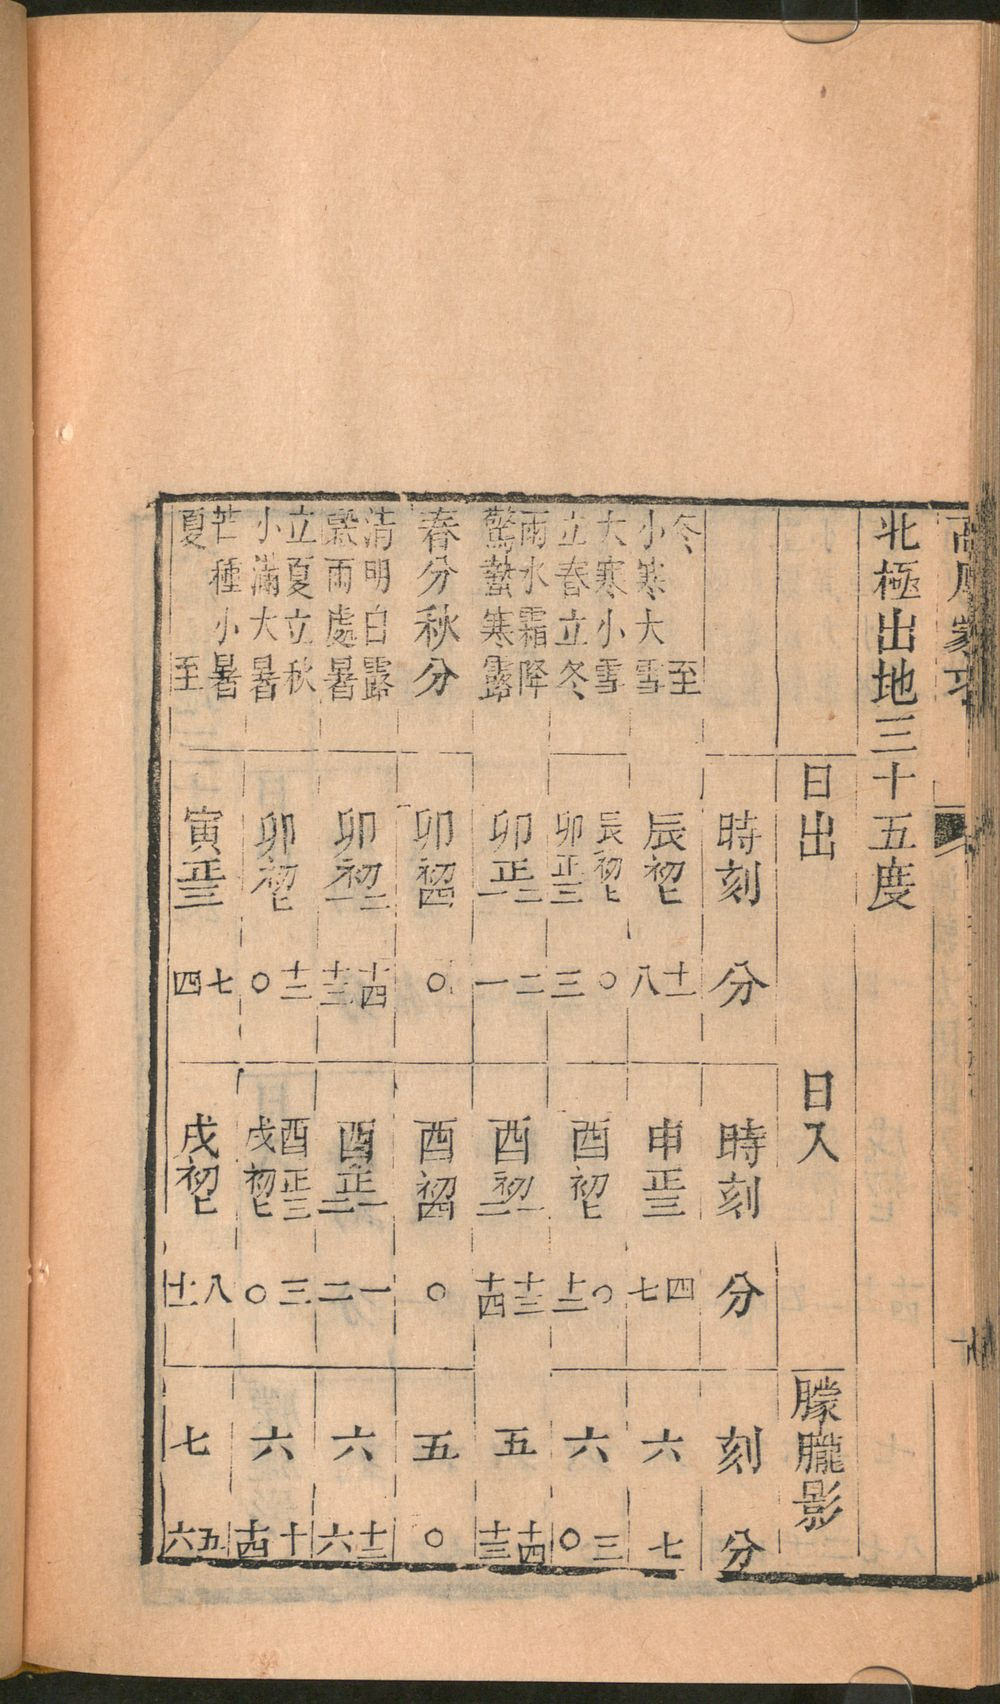 高厚蒙求
北極出地三十五度
日出 日入 朦朧影
時刻 分 時刻 分 刻 分
冬至 辰初七 十一 申正三 四 六 七
小寒大雪 八 七
大寒小雪 辰初七 ○ 酉初七 ○ 六 三
立春立冬 卯正三 三 十二 ○
雨水霜降 卯正二 二 酉初一 十三 五 十四
驚蟄寒露 一 一 二 十四 十三
春分秋分 卯初四 ○ 酉初四 ○ 五 ○
清明白露 卯初二 十四 酉正一 一 六 十二
穀雨處暑 一 十三 二 二 六
立夏立秋 卯初七 十二 酉正三 三 六 十
小滿大暑 ○ 戌初七 ○ 十四
芒種小暑 寅正三 七 戌初七 八 七 五
夏至 四 十一 六